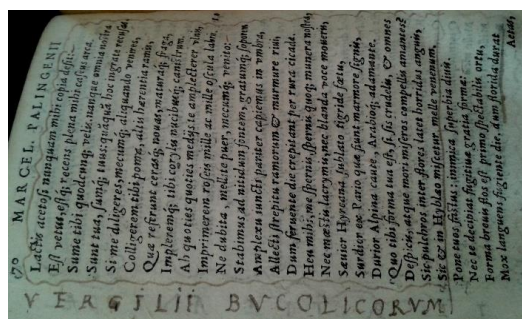 170 MARCEL. PALINGENII
Lactis acetosi nunquam mihi copia desit:
Est vetus, estq́; recens; plena est mihi caseus arca.
Sume tibi quodcunq; velis. nanque omnia nostra
Sunt tua, sumq́; tuus: quāquā hoc ingrate recuses.
Si me diligeres, mecumq́; aliquando venires,
Colligerem tibi poma, altis hærentia ramis,
Quæ referunt cerasq́; novas, maturaq́; fraga,
Implerenq́; tibi corylis nucibusq́; canistrum.
Ah quoties medius te amplecterer vlnis,
Imprimerem roseis mille ac mille oscula labris,
Ne dubita, mecite puer, mecumq́; venito:
Stabimus ad nitidum fontem, gratumq́; soporem
Amplexu iunctis pariter capiemus in vmbra,
Allecti strepitu ramorum & murmure riui,
Dum feruente die crepitant per rura cicadæ.
Heu mihi, me spernis, spernis quoq; munera nostra,
Nec mœstis lacrymis, nec blanda voce moueris,
Sæuior Hyrcana sublato tigride fœtu,
Surdior ex Pario quæ sunt marmore signis,
Durior Alpina caute, Arabioq́; adamante.
Quo tibi forma tua est, si sis crudelis, & omnes
Despicis, atque mori miseros compellis amantes?
Sic pulchros inter flores latet horridus anguis,
Sic & in Hyblæo miscetur melle venenum.
Pone tuos fastus: inimica superbia diuis.
Nec te decipiat fugitiuæ gratia formæ:
Forma breuis flos est primo spectabilis ortu,
Mox languens fugiente die, dum florida durat
Aetas,
VERGILII BVCOLICORVM